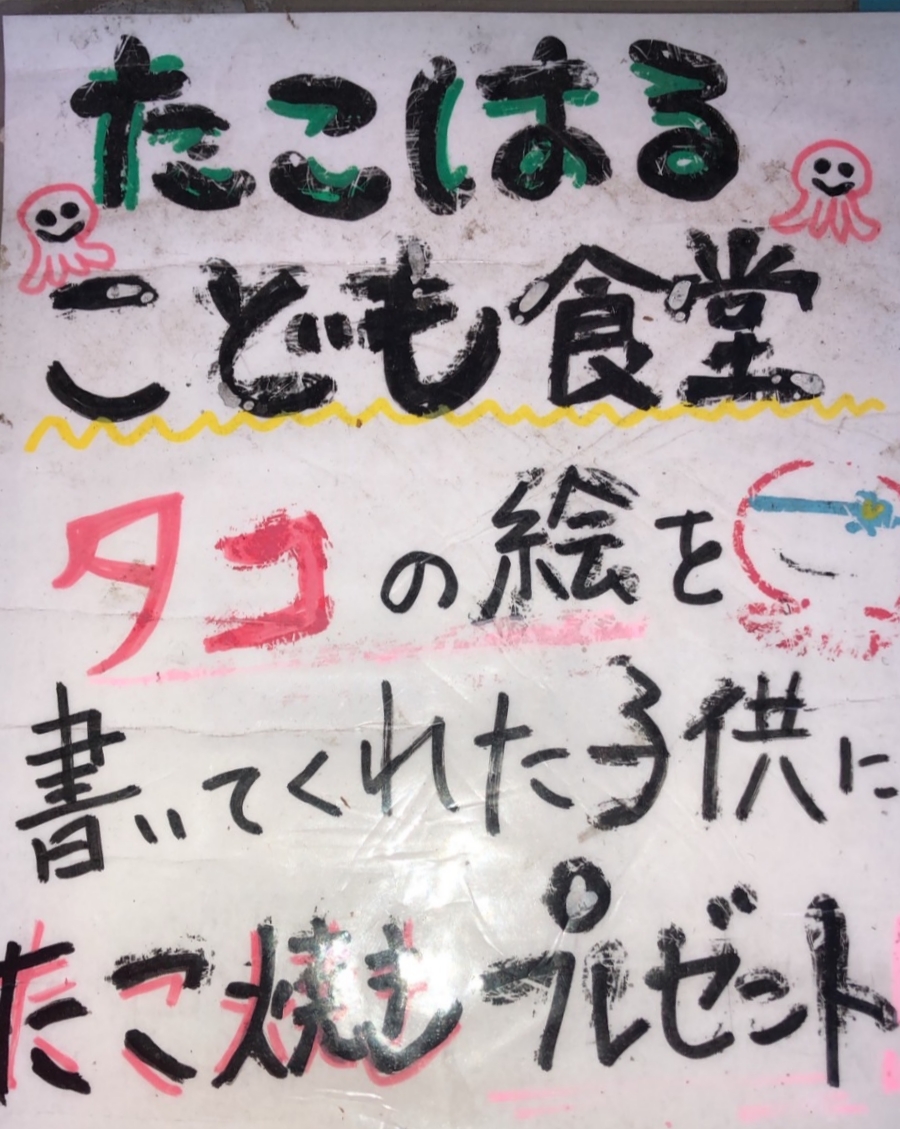 たこはる
こども食堂
タコの絵を
書いてくれた子供に
たこ焼きプレゼント